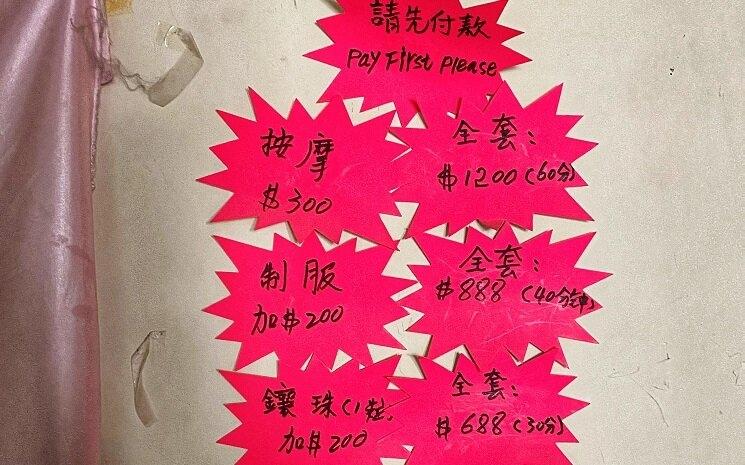 請先付款
Pay First Please
按摩
$300
全套:
$1200(60分)
制服
加$200
全套:
$888(40分鈡)
鑲珠(1粒)
加$200
全套:
$688(30分)